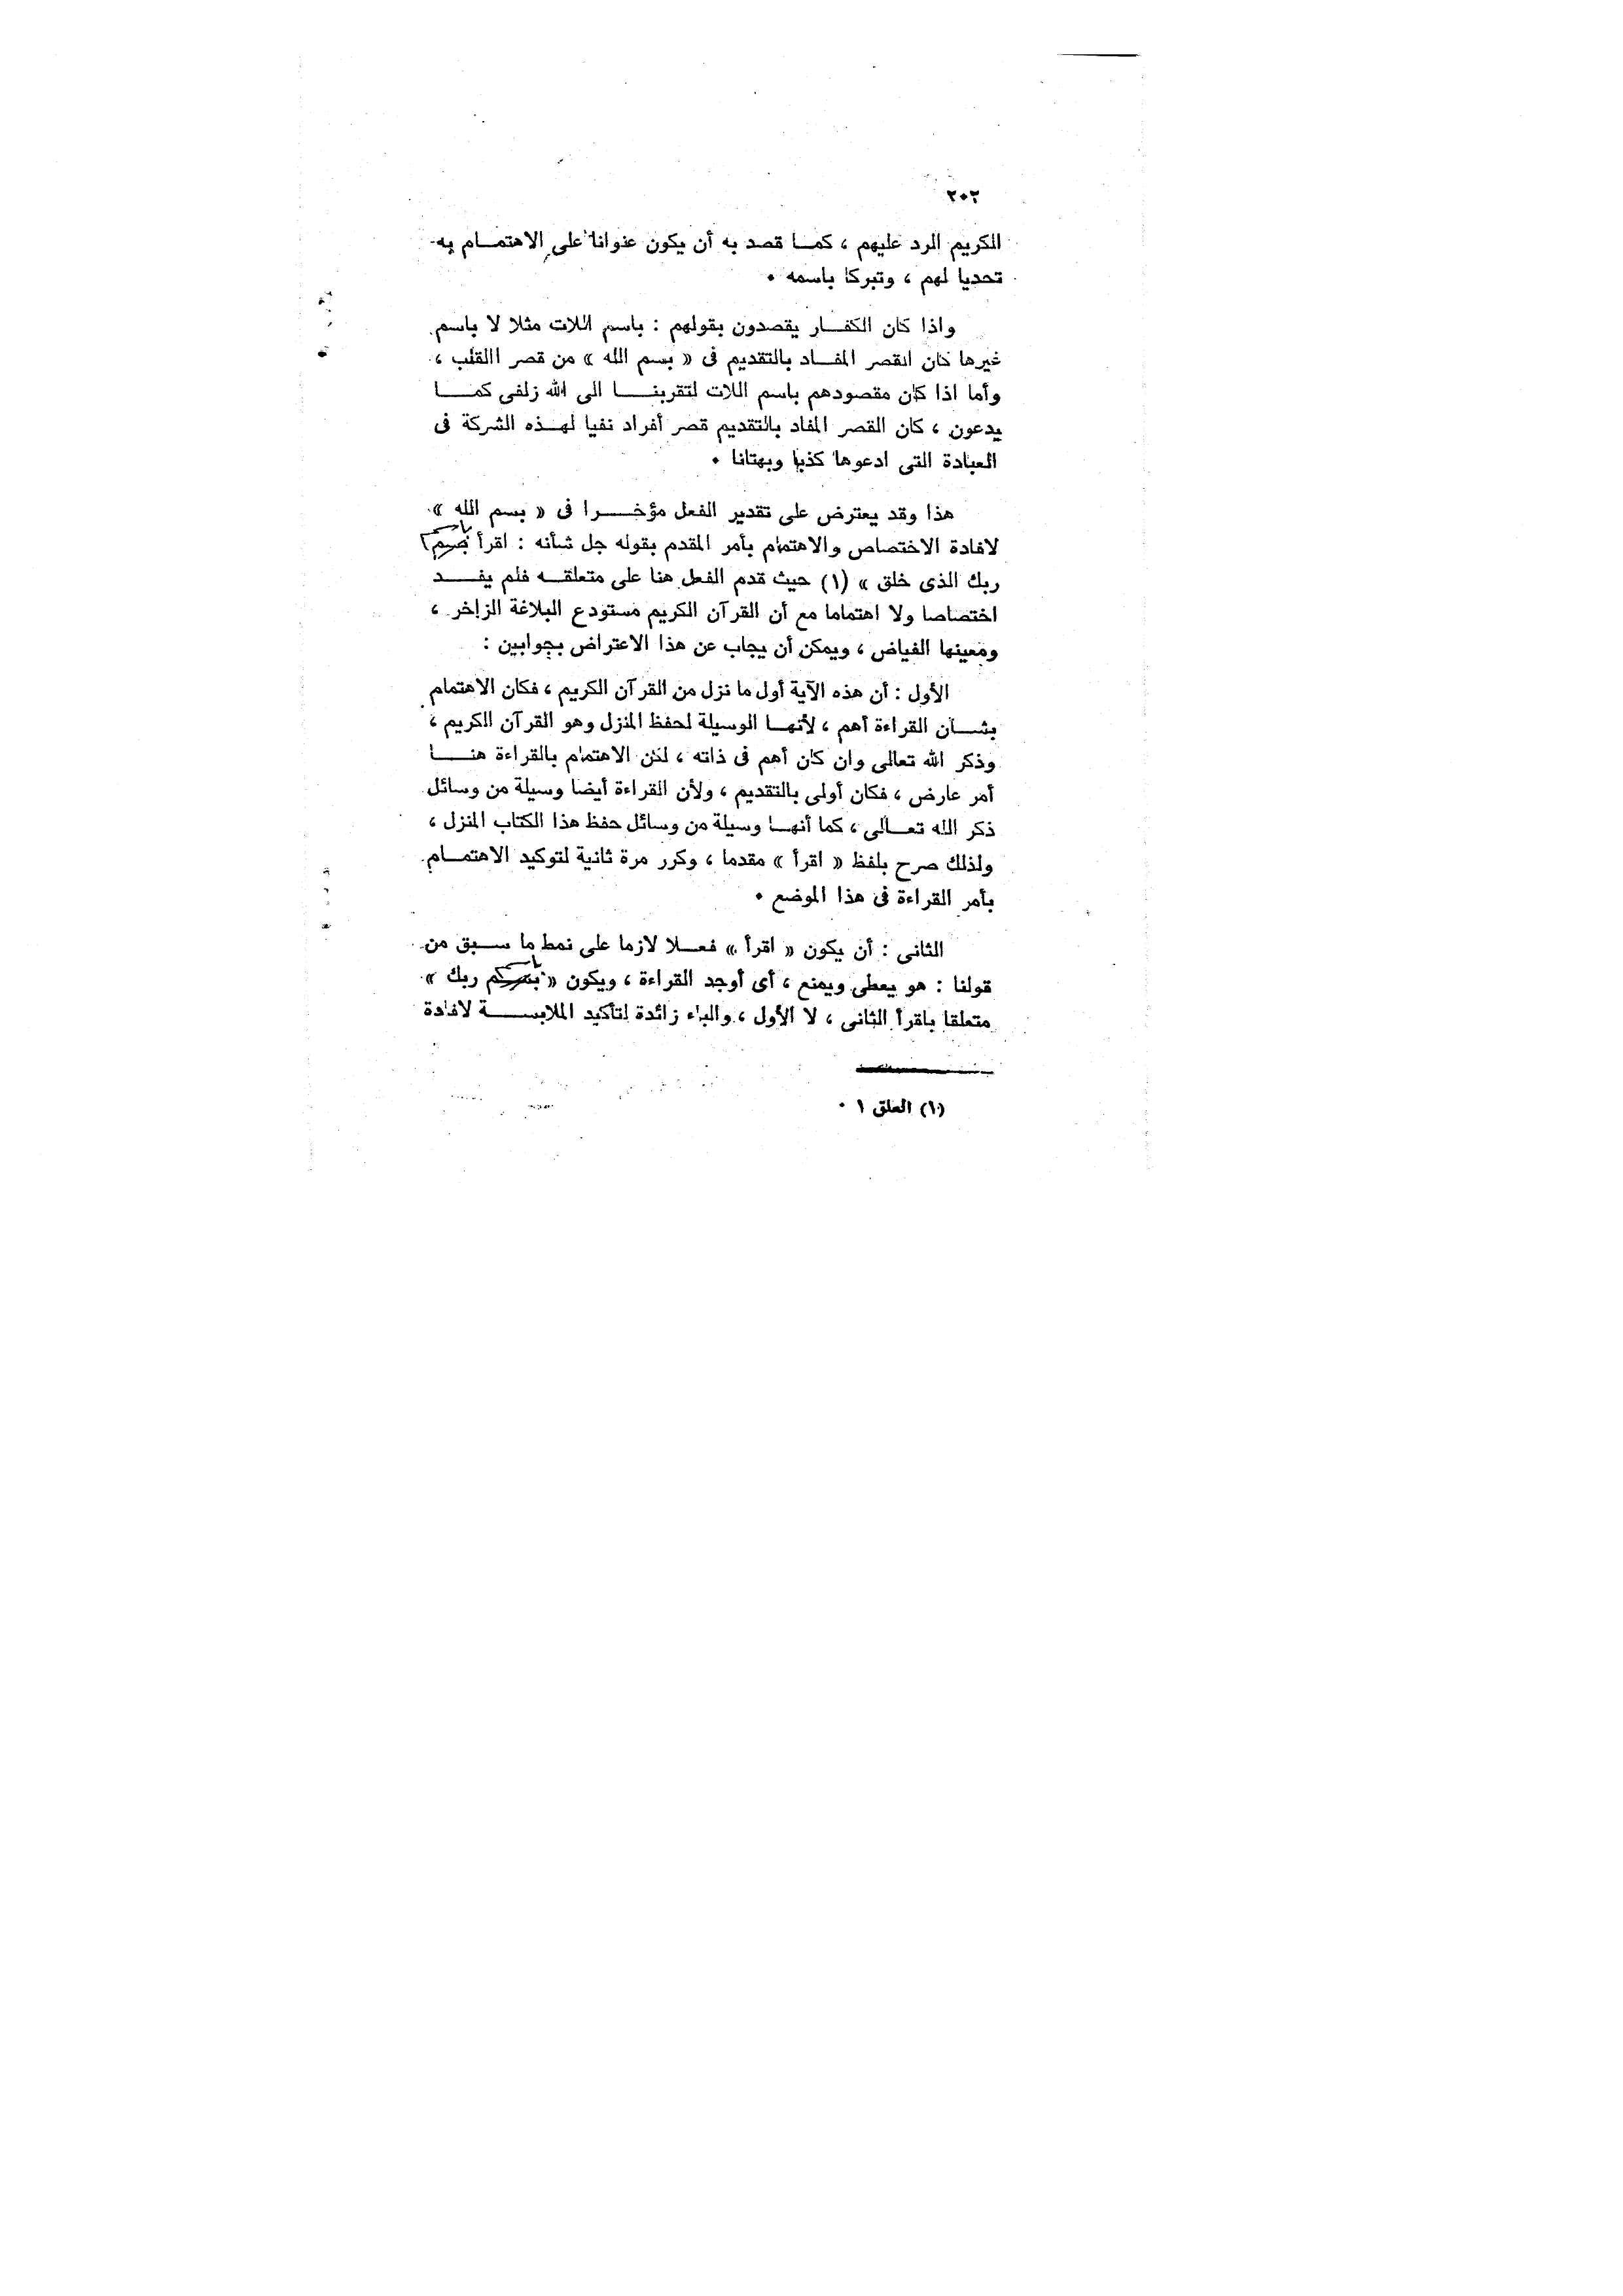 ٢٠٢
الكريم الرد عليهم ، كمـا قصد به أن يكون عنوانا على الاهتمـام به
تحديا لهم ، وتبركا باسمه ٠
واذا كان الكفـار يقصدون بقولهم : باسم اللات مثلا لا باسم
غيرها كان القصر المفـاد بالتقديم فى « بسم الله » من قصر القلب ،
وأما اذا كان مقصودهم باسم اللات لتقربنـا الى الله زلفى كمـا
يدعون ، كان القصر المفاد بالتقديم قصر أفراد نفيا لهـذه الشركة فى
العبادة التى ادعوها كذبا وبهتانا ٠
هذا وقد يعترض على تقدير الفعل مؤخـرا فى « بسم الله »
لافادة الاختصاص والاهتمام بأمر المقدم بقوله جل شأنه : اقرأ باسم
ربك الذى خلق » (١) حيث قدم الفعل هنا على متعلقـه فلم يفـد
اختصاصا ولا اهتماما مع أن القرآن الكريم مستودع البلاغة الزاخر ،
ومعينها الفياض ، ويمكن أن يجاب عن هذا الاعتراض بجوابين :
الأول : أن هذه الآية أول ما نزل من القرآن الكريم ، فكان الاهتمام
بشـأن القراءة أهم ، لأنهـا الوسيلة لحفظ المنزل وهو القرآن الكريم ،
وذكر الله تعالى وان كان أهم فى ذاته ، لكن الاهتمام بالقراءة هنـا
أمر عارض ، فكان أولى بالتقديم ، ولأن القراءة أيضا وسيلة من وسائل
ذكر الله تعـالى ، كما أنهـا وسيلة من وسائل حفظ هذا الكتاب المنزل ،
ولذلك صرح بلفظ « اقرأ » مقدما ، وكرر مرة ثانية لتوكيد الاهتمـام
بأمر القراءة فى هذا الموضع ٠
الثانى : أن يكون « اقرأ » فعـلا لازما على نمط ما سـبق من
قولنا : هو يعطى ويمنع ، أى أوجد القراءة ، ويكون « باسم ربك »
متعلقا باقرأ الثانى ، لا الأول ، والباء زائدة لتأكيد الملابسـة لافادة
(١) العلق ١ ٠